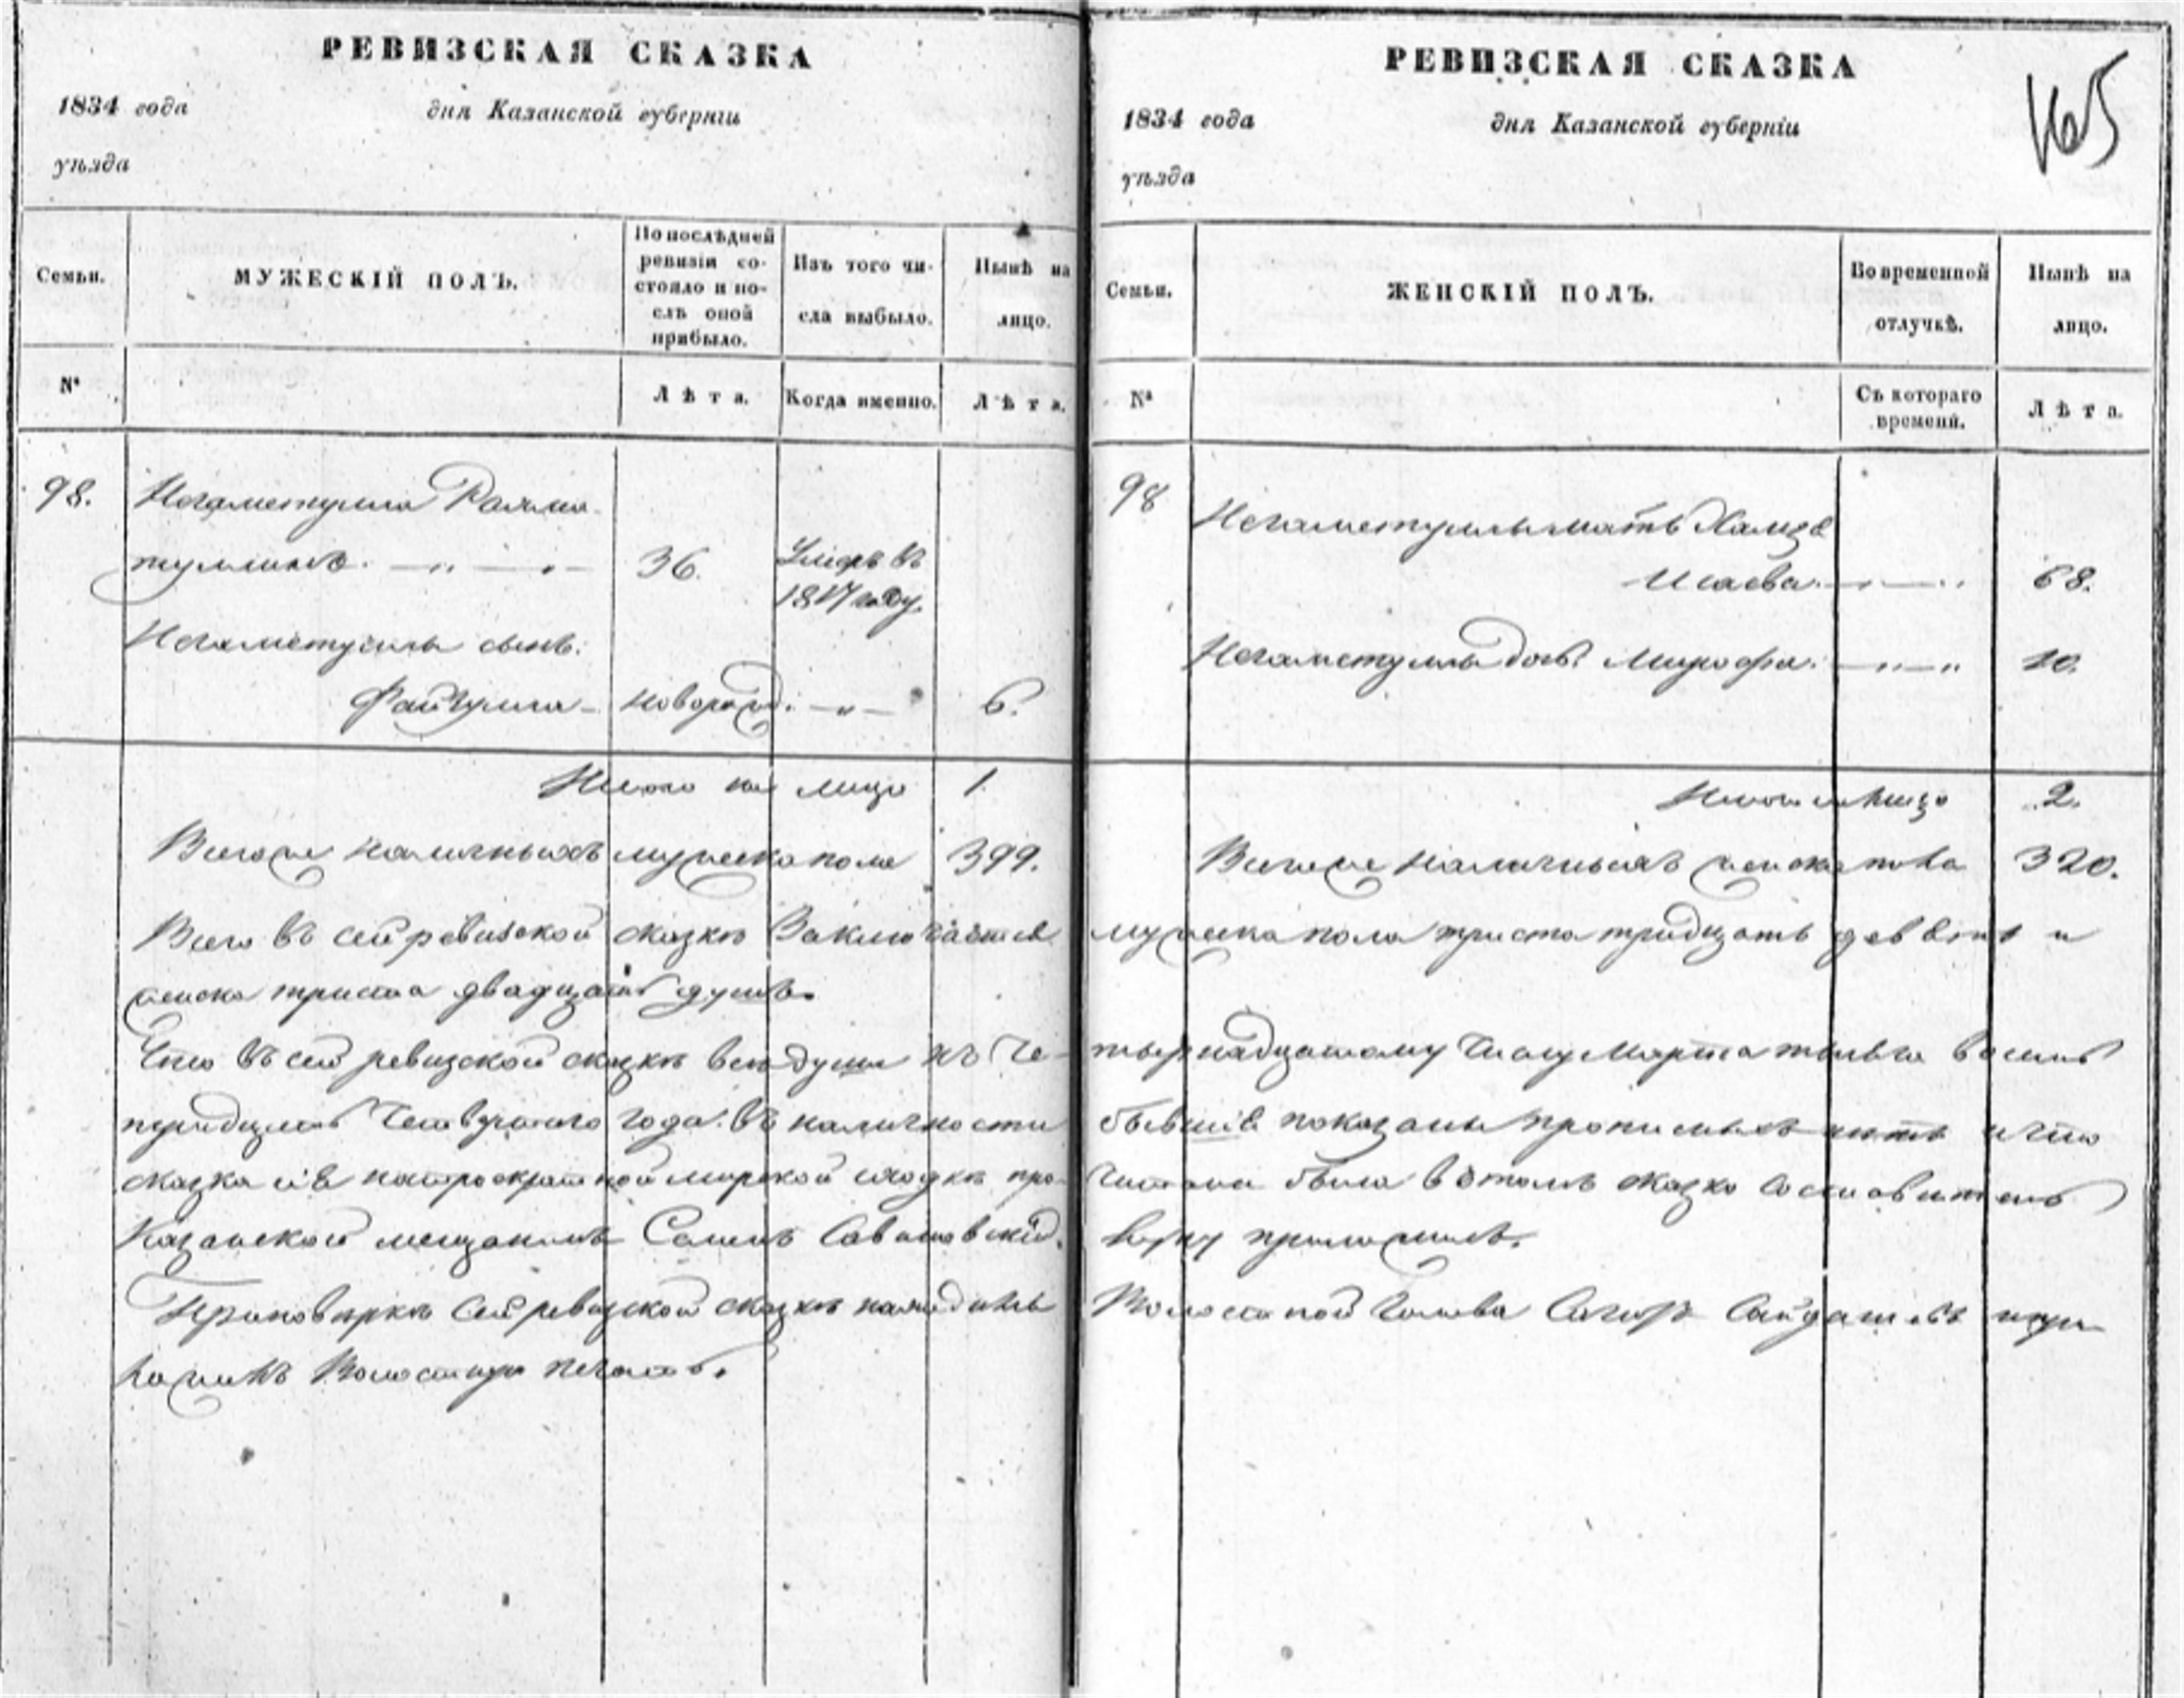 РЕВИЗСКАЯ СКАЗКА
1834 года дня Казанской губернiи
уѣзда
Семьи. МУЖЕСКIЙ ПОЛЪ. По послѣдней ревизiи состояло и послѣ оной прибыло. Изъ того числа выбыло. Нынѣ на лицо.
№ Лѣта. Когда именно. Лѣта.
98. Негаметулла Рахма
туллинъ. 36. Умеръ въ
1817 году.
Негаметуллы сынъ.
Файзулла новорожд. 6.
Итого на лицо 1.
Всего же наличныхъ мужеска пола 399.
РЕВИЗСКАЯ СКАЗКА
165
1834 года дня Казанской губернiи
уѣзда
Семьи. ЖЕНСКIЙ ПОЛЪ. Во временной отлучкѣ. Нынѣ на лицо.
№ Съ котораго времени. Лѣта.
98 Негаметуллы мать
68.
Негаметуллы 10.
Итого на лицо 2.
Всего же наличныхъ женска пола 320.
Всего въ сей ревизской сказкѣ Заключается мужеска пола триста тридцать девять и
женска триста двадцать душъ.
Что въ сей ревизской сказкѣ все души къ Че- тырнадцатому Числу Марта тысяча восемь
тридцать Четвертого года въ наличности бывшiе показаны прописныхъ нетъ и что
сказка сiя на мирской сходкѣ про- читана была в томъ сказко составитель
Казанской мещанинъ руку приложилъ.
При поверкѣ Сей ревизской сказкѣ находилъ Волостной Голова при
ложилъ Волостную печать.